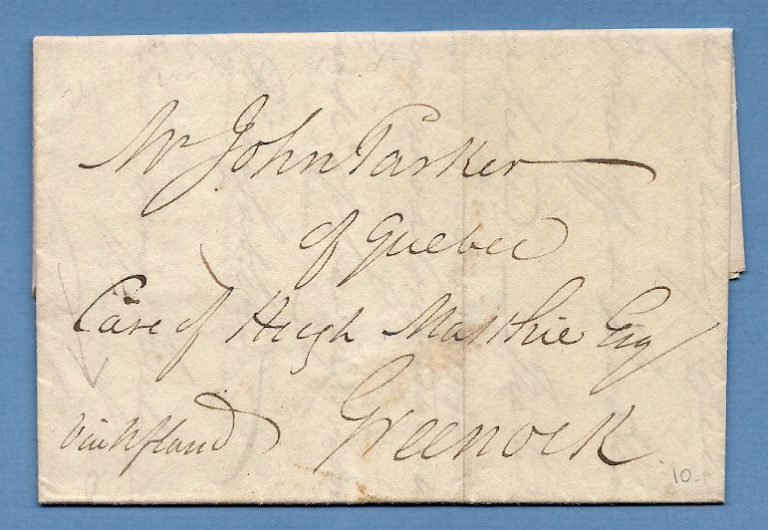 Mr John Parker
of Quebec
Care of Hugh Matthie Esq
Greenock
via Nfland
10.